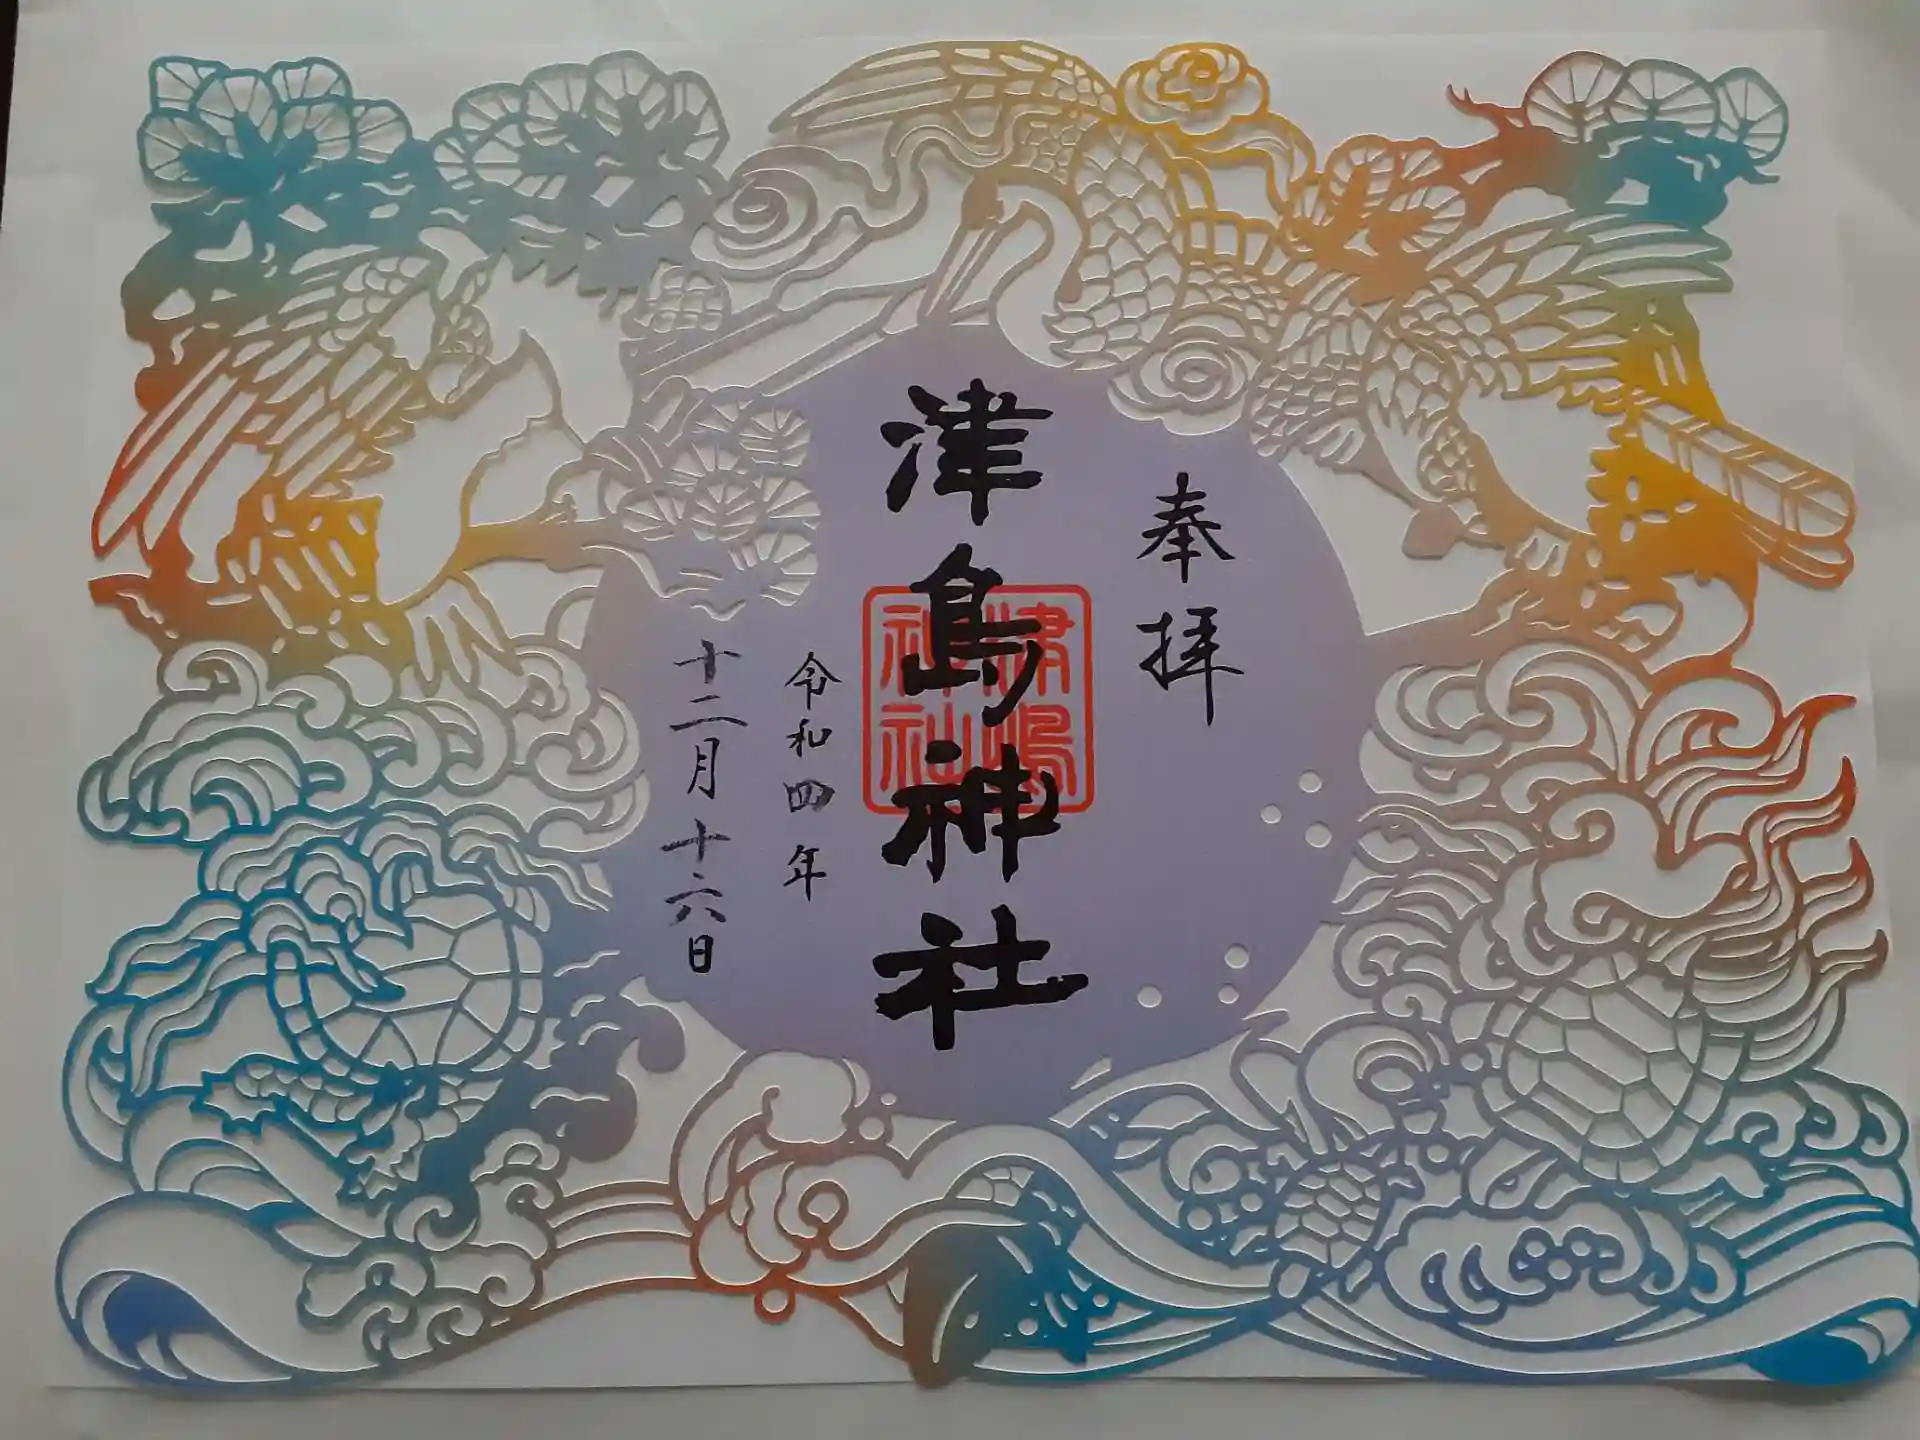 奉拝
津島神社
津嶋神社
令和四年
十二月十六日